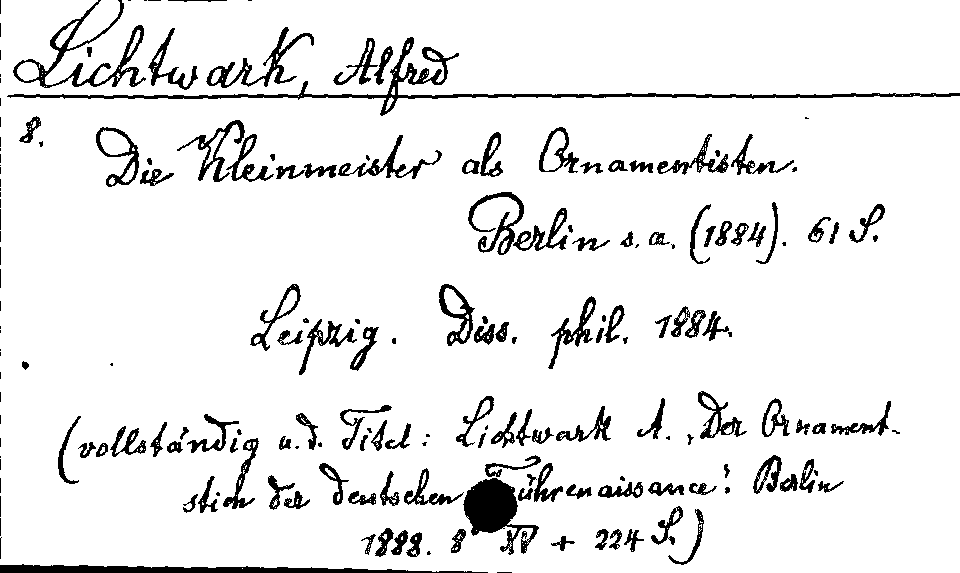 Lichtwark, Alfred
8.
Die Kleinmeister als Ornamentisten.
Berlin s. a. (1884). 61 S.
Leipzig. Diss. phil. 1884.
(vollständig u. d. Titel: Lichtwark A. „Der Ornament-
stich der deutschen Frührenaissance". Berlin
1888. 8° XV + 224 S.)